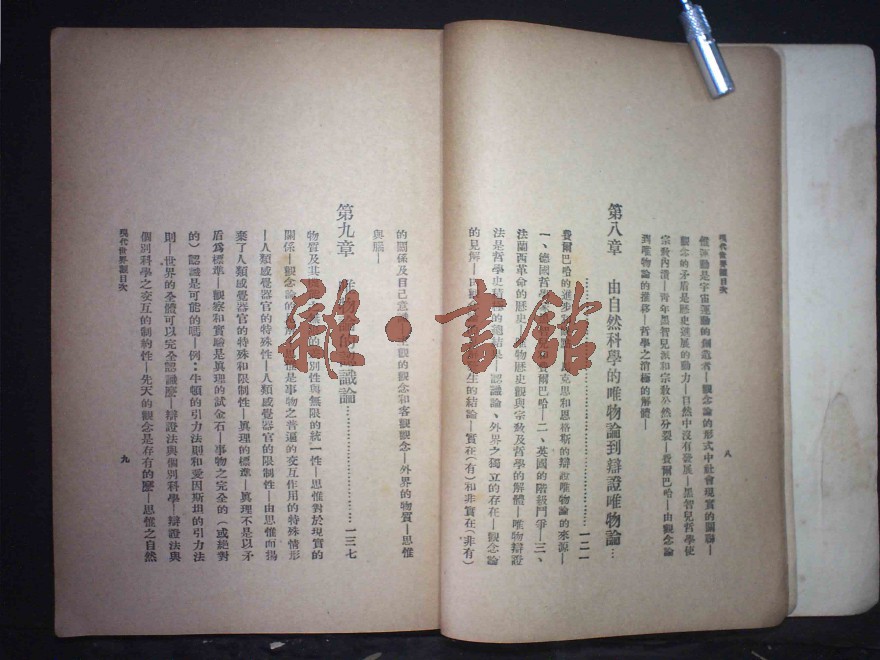 現代世界觀目次
體運動是宇宙運動的創造者—觀念論的形式中社會現實的關聯—
觀念的矛盾是歷史進展的動力—自然中沒有發展—黑智兒哲學使
宗教內潰—青年黑智兒派和宗教公然分裂—費爾巴哈—由觀念論
到唯物論的推移—哲學之消極的解體—
第八章 由自然科學的唯物論到辯證唯物論…
…一二一
費爾巴哈的進步 克思和恩格斯的辯證唯物論的來源—
一、德國哲學 費爾巴哈—二、英國的階級鬥爭—三、
法蘭西革命的歷史— 唯物歷史觀與宗教及哲學的解體—唯物辯證
法是哲學史積極的總結果—認識論、外界之獨立的存在—觀念論
的見解— 生的結論—實在(有)和非實在(非有)
八
的關係及自己意 觀的觀念和客觀觀念—外界的物質—思惟
與腦—
第九章 唯物論的認識論…一三七
物質及其 的 別性與無限的統一性—思惟對於現實的
關係—觀念論的 是事物之普遍的交互作用的特殊情形
—人類感覺器官的特殊性—人類感覺器官的限制性—由思惟而揚
棄了人類感覺器官的特殊和限制性—真理的標準—真理不是以矛
盾為標準—觀察和實驗是真理的試金石—事物之完全的(或絕對
的)認識是可能的嗎—例:牛頓的引力法則和愛因斯坦的引力法
則—世界的全體可以完全認識麼—辯證法與個別科學—辯證法與
個別科學之交互的制約性—先天的觀念是存有的麼—思惟之自然
現代世界觀目次
九
雜·書館